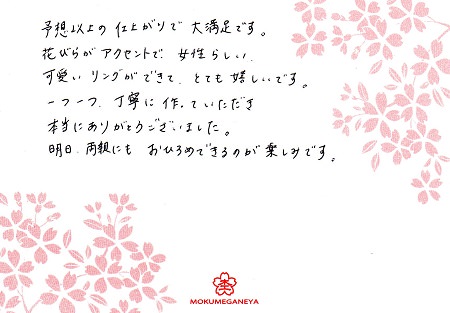 予想以上の仕上がりで大満足です。
花びらがアクセントで、女性らしい、
可愛いリングができて、とても嬉しいです。
一つ一つ、丁寧に作っていただき
本当にありがとうございました。
明日、両親にもおひろめできるのが楽しみです。
MOKUMEGANEYA